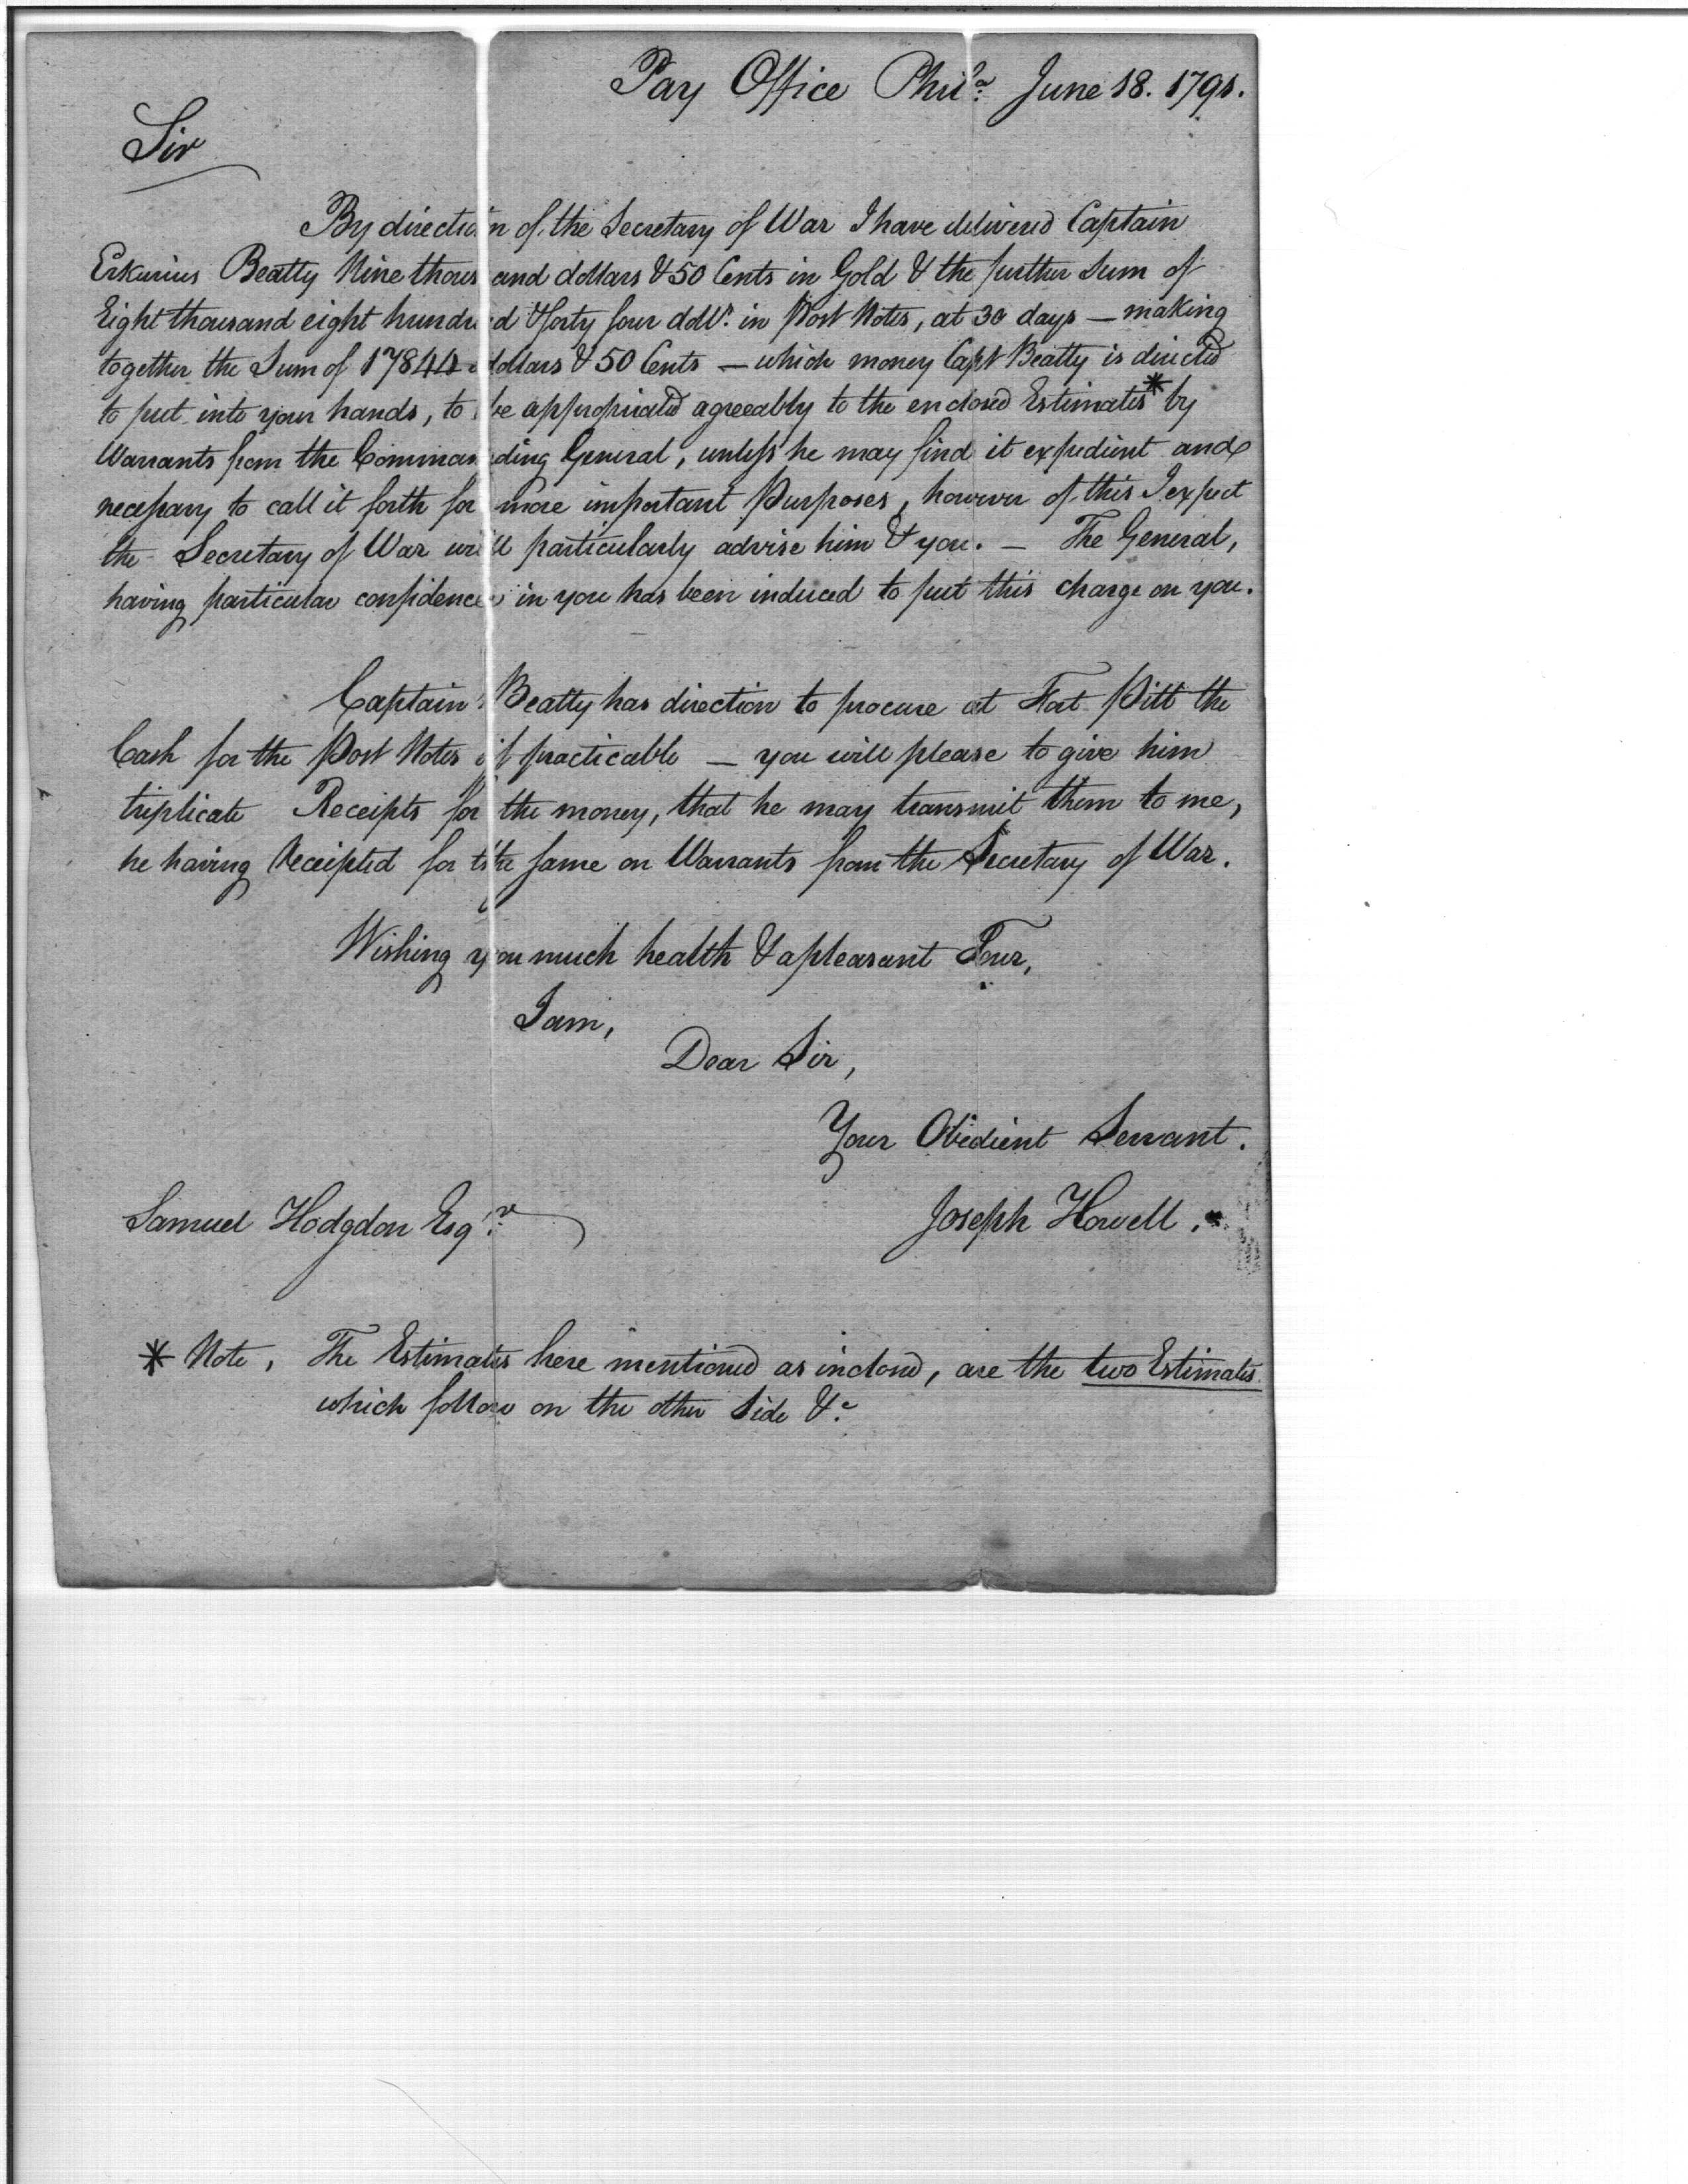 Pay Office Phila. June 18. 1791.
Sir
By direction of the Secretary of War I have delivered Captain
Erkurius Beatty Nine thousand dollars & 50 Cents in Gold & the further Sum of
Eight thousand eight hundred & forty four dollrs. in Post Notes, at 30 days — making
together the Sum of 17844 dollars & 50 Cents — which money Capt Beatty is directed
to put into your hands, to be appropriated agreeably to the enclosed Estimates* by
Warrants from the Commanding General, unless he may find it expedient and
necessary to call it forth for more important Purposes, however of this I expect
the Secretary of War will particularly advise him & you. — The General,
having particular confidence in you has been induced to put this charge on you.
Captain Beatty has direction to procure at Fort Pitt the
Cash for the Post Notes if practicable — you will please to give him
triplicate Receipts for the money, that he may transmit them to me,
he having Receipted for the same on Warrants from the Secretary of War.
Wishing you much health & a pleasant Tour,
I am,
Dear Sir,
Your Obedient Servant.
Samuel Hodgdon Esqr. Joseph Howell.
* Note, The Estimates here mentioned as inclosed, are the two Estimates
which follow on the other Side &c.